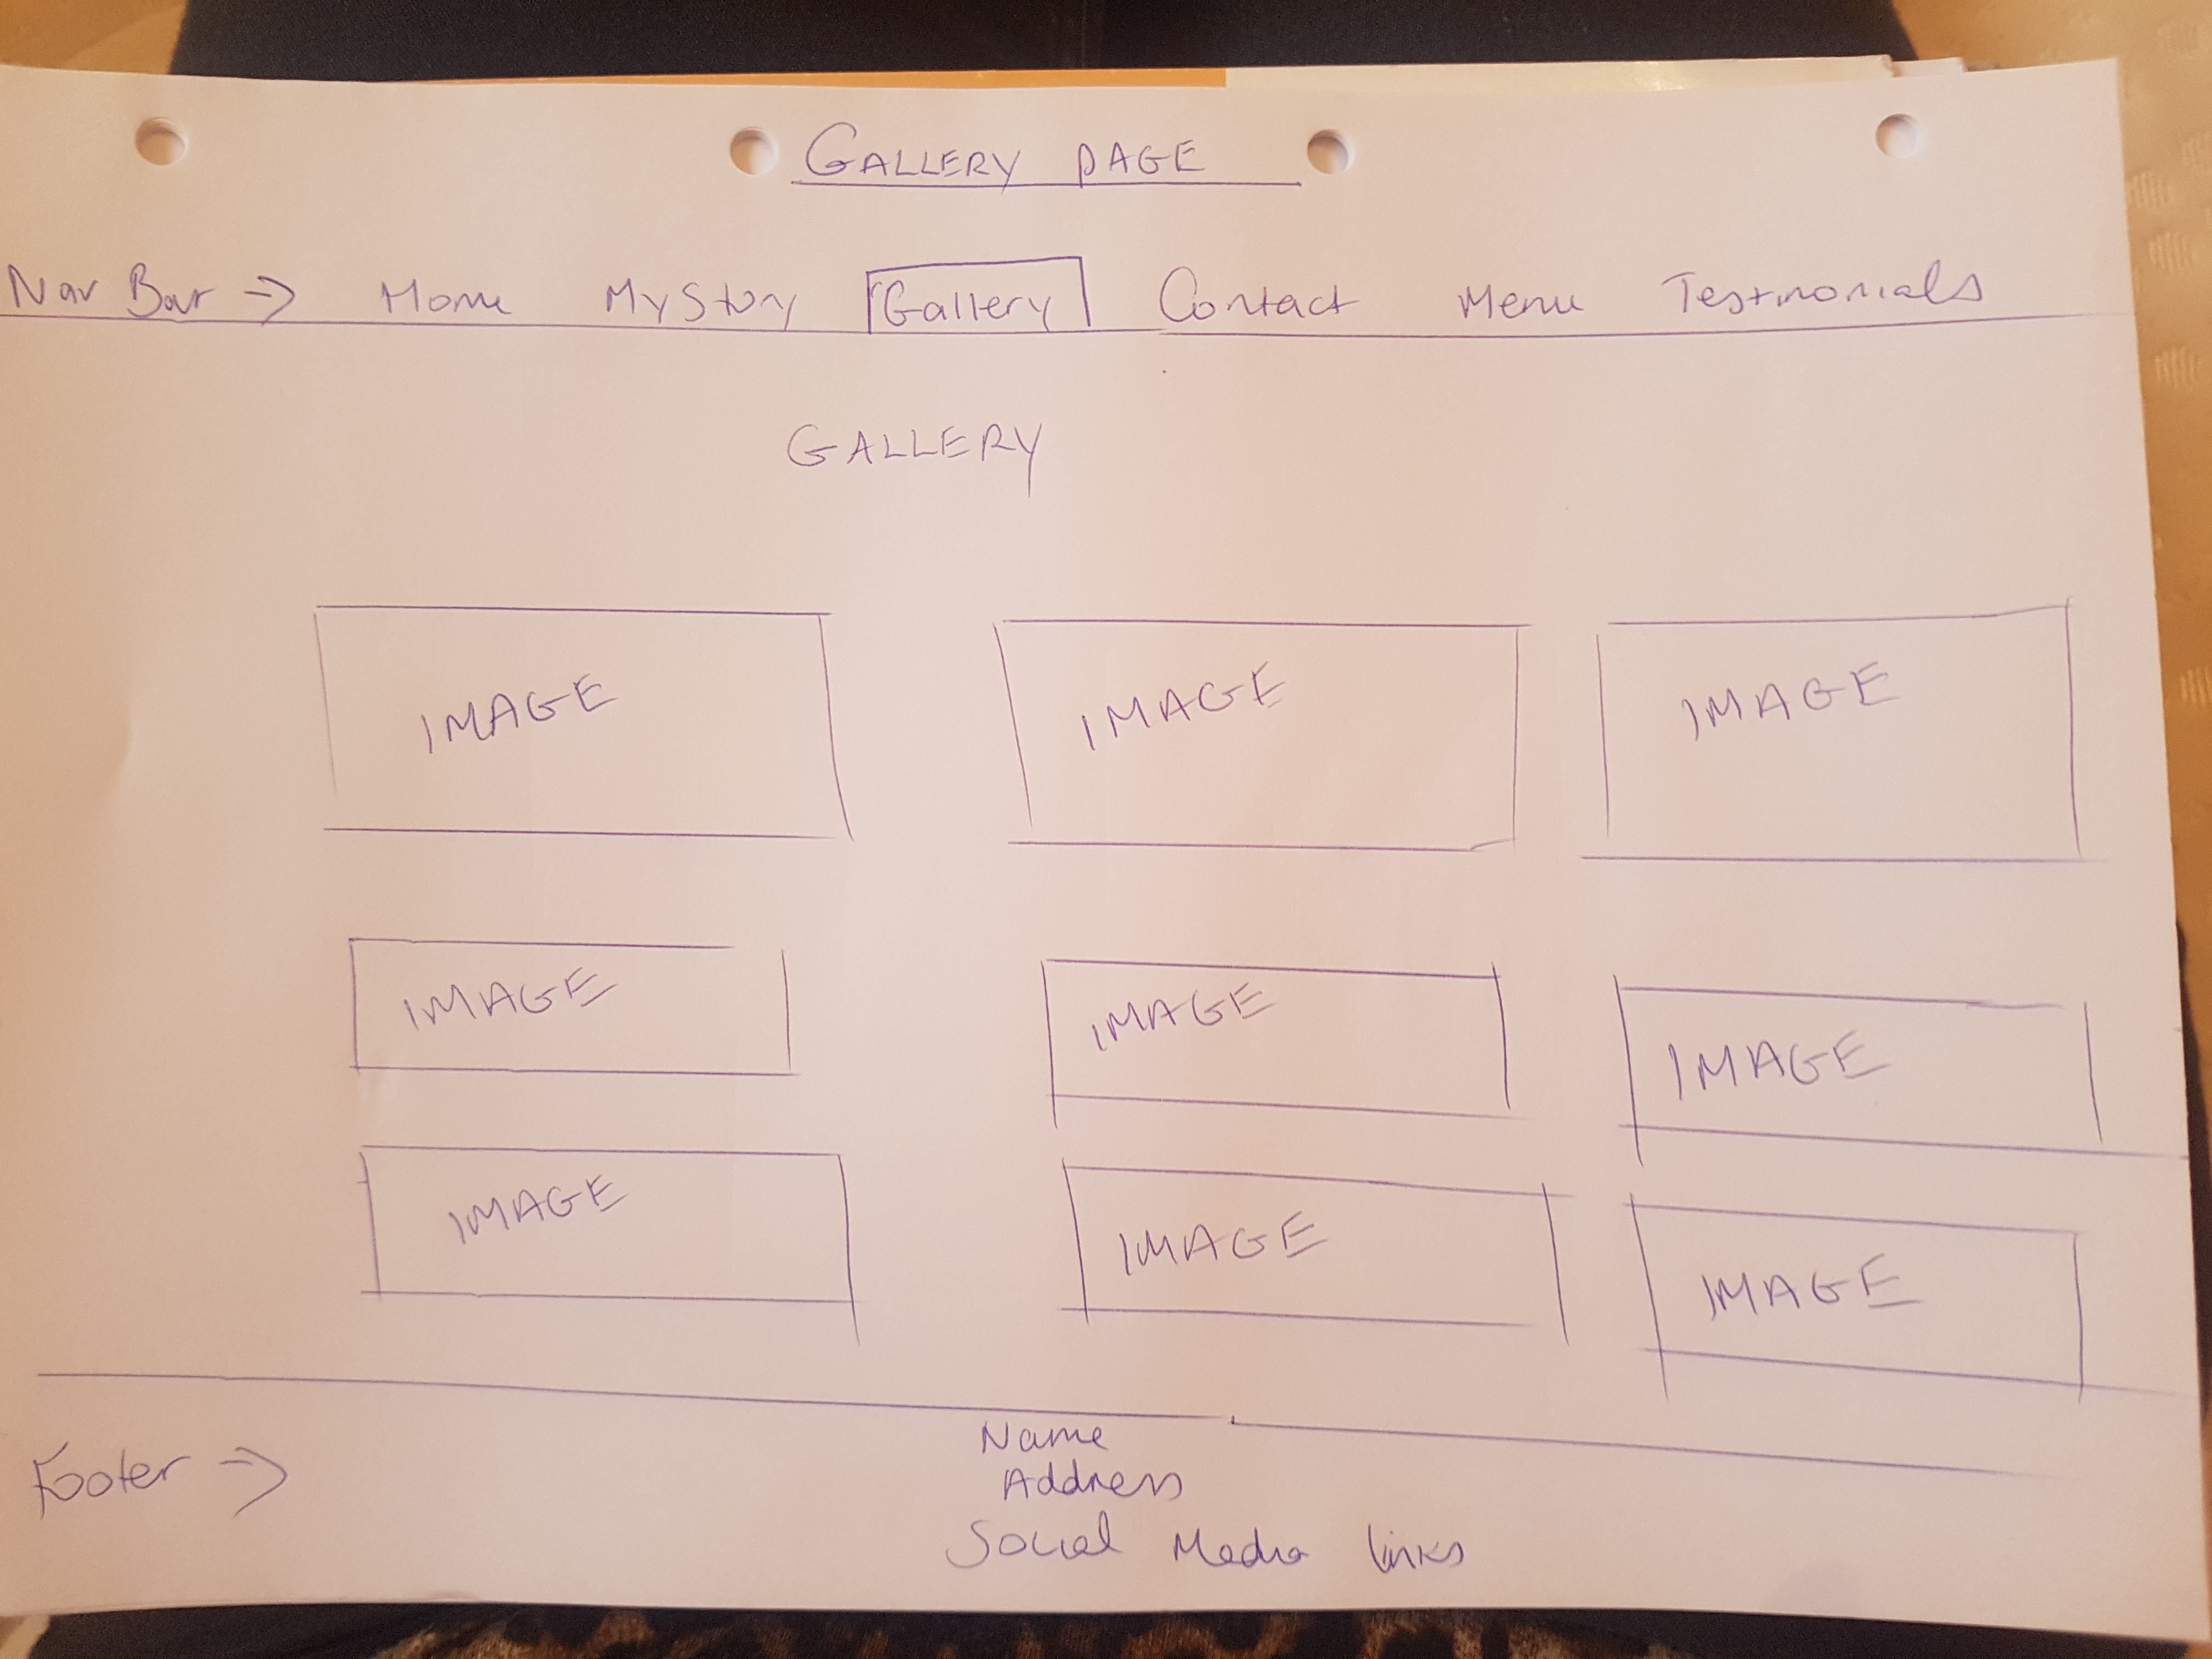 GALLERY PAGE
Nav Bar => Home My Story Gallery Contact Menu Testimonials
GALLERY
IMAGE IMAGE IMAGE
IMAGE IMAGE IMAGE
IMAGE IMAGE IMAGE
Footer => Name
Address
Social Media links